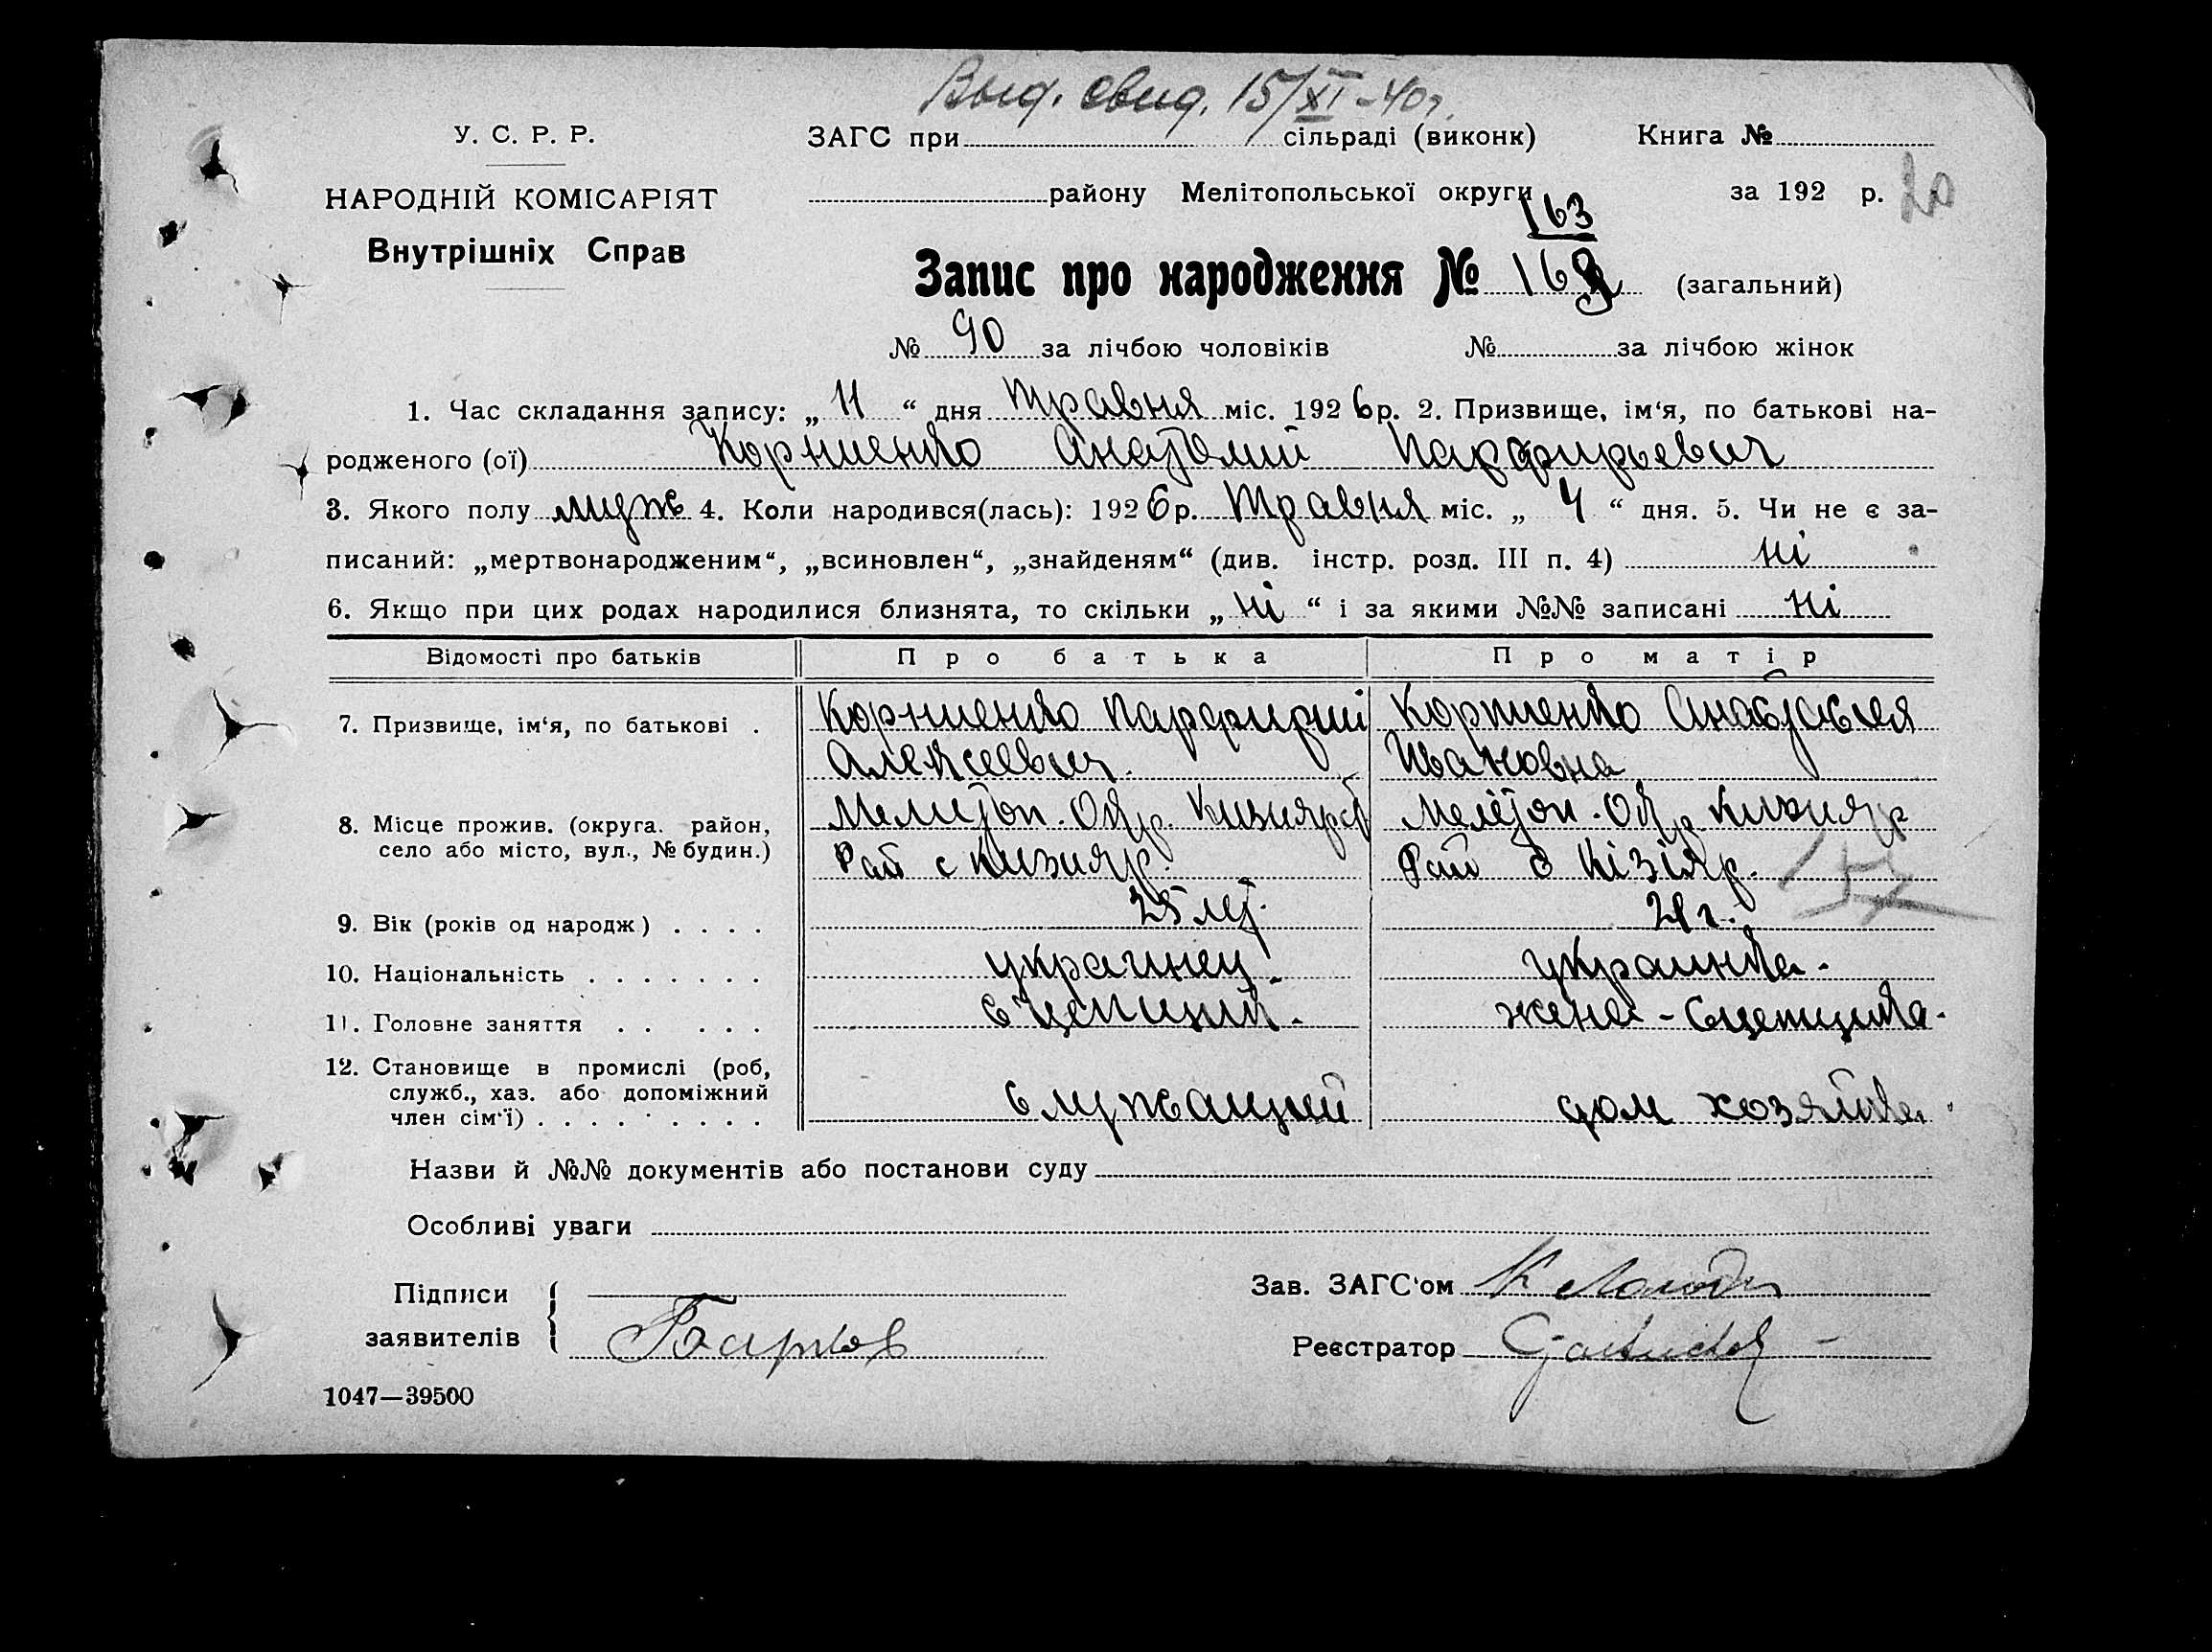 Выд. свид. 15/XI-40г.
У. С. Р. Р.
ЗАГС при сільраді (виконк) Книга №
НАРОДНІЙ КОМІСАРІЯТ
району Мелітопольської округи за 192 р. 20
Внутрішніх Справ
163
Запис про народження № 169 (загальний)
№ 90 за лічбою чоловіків № за лічбою жінок
1. Час складання запису: „ 11 “ дня травня міс. 1926р. 2. Призвище, ім‘я, по батькові на-
родженого (ої) Корниенко Анатолий Парфирьевич
3. Якого полу муж 4. Коли народився(лась): 1926р. травня міс. „ 4 “ дня. 5. Чи не є за-
писаний: „мертвонародженим“, „всиновлен“, „знайденям“ (див. інстр. розд. III п. 4) ні
6. Якщо при цих родах народилися близнята, то скільки „ ні “ і за якими №№ записані ні
Відомості про батьків Про батька Про матір
7. Призвище, ім‘я, по батькові . Корниенко Парфирий Корниенко Анастасия
Алексеевич. Ивановна
8. Місце прожив. (округа. район, Мелитоп. Окр. Кизиярск Мелітоп. Окр Кизияр
село або місто, вул., № будин.) Рай с Кизияр. Рай с Кізіяр.
9. Вік (років од народж) . . . . 25 лет. 21 г.
10. Національність . . . . . . . украинец. украинка.
11. Головне заняття . . . . . сцепщик. жена - сцепщика.
12. Становище в промислі (роб,
служб., хаз. або допоміжний
член сім‘ї) . . . . . . . . служащий дом хозяйка
Назви й №№ документів або постанови суду
Особливі уваги
Підписи
заявителів
Зав. ЗАГС‘ом
Реєстратор
1047—39500